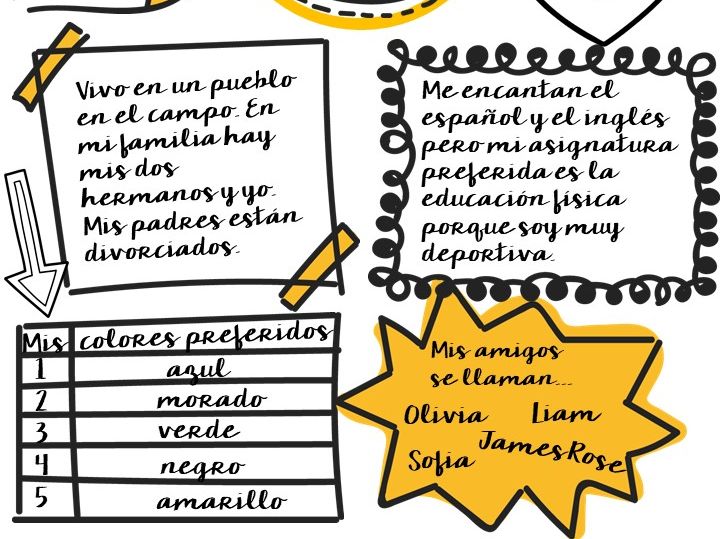 Vivo en un pueblo
en el campo. En
mi familia hay
mis dos
hermanos y yo.
Mis padres están
divorciados.
Me encantan el
español y el inglés
pero mi asignatura
preferida es la
educación física
porque soy muy
deportiva.
Mis colores preferidos
1 azul
2 morado
3 verde
4 negro
5 amarillo
Mis amigos
se llaman...
Olivia Liam
Sofia James Rose